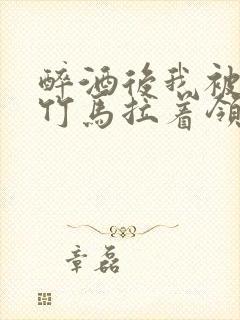 醉酒後我被
竹馬拉着領
章磊